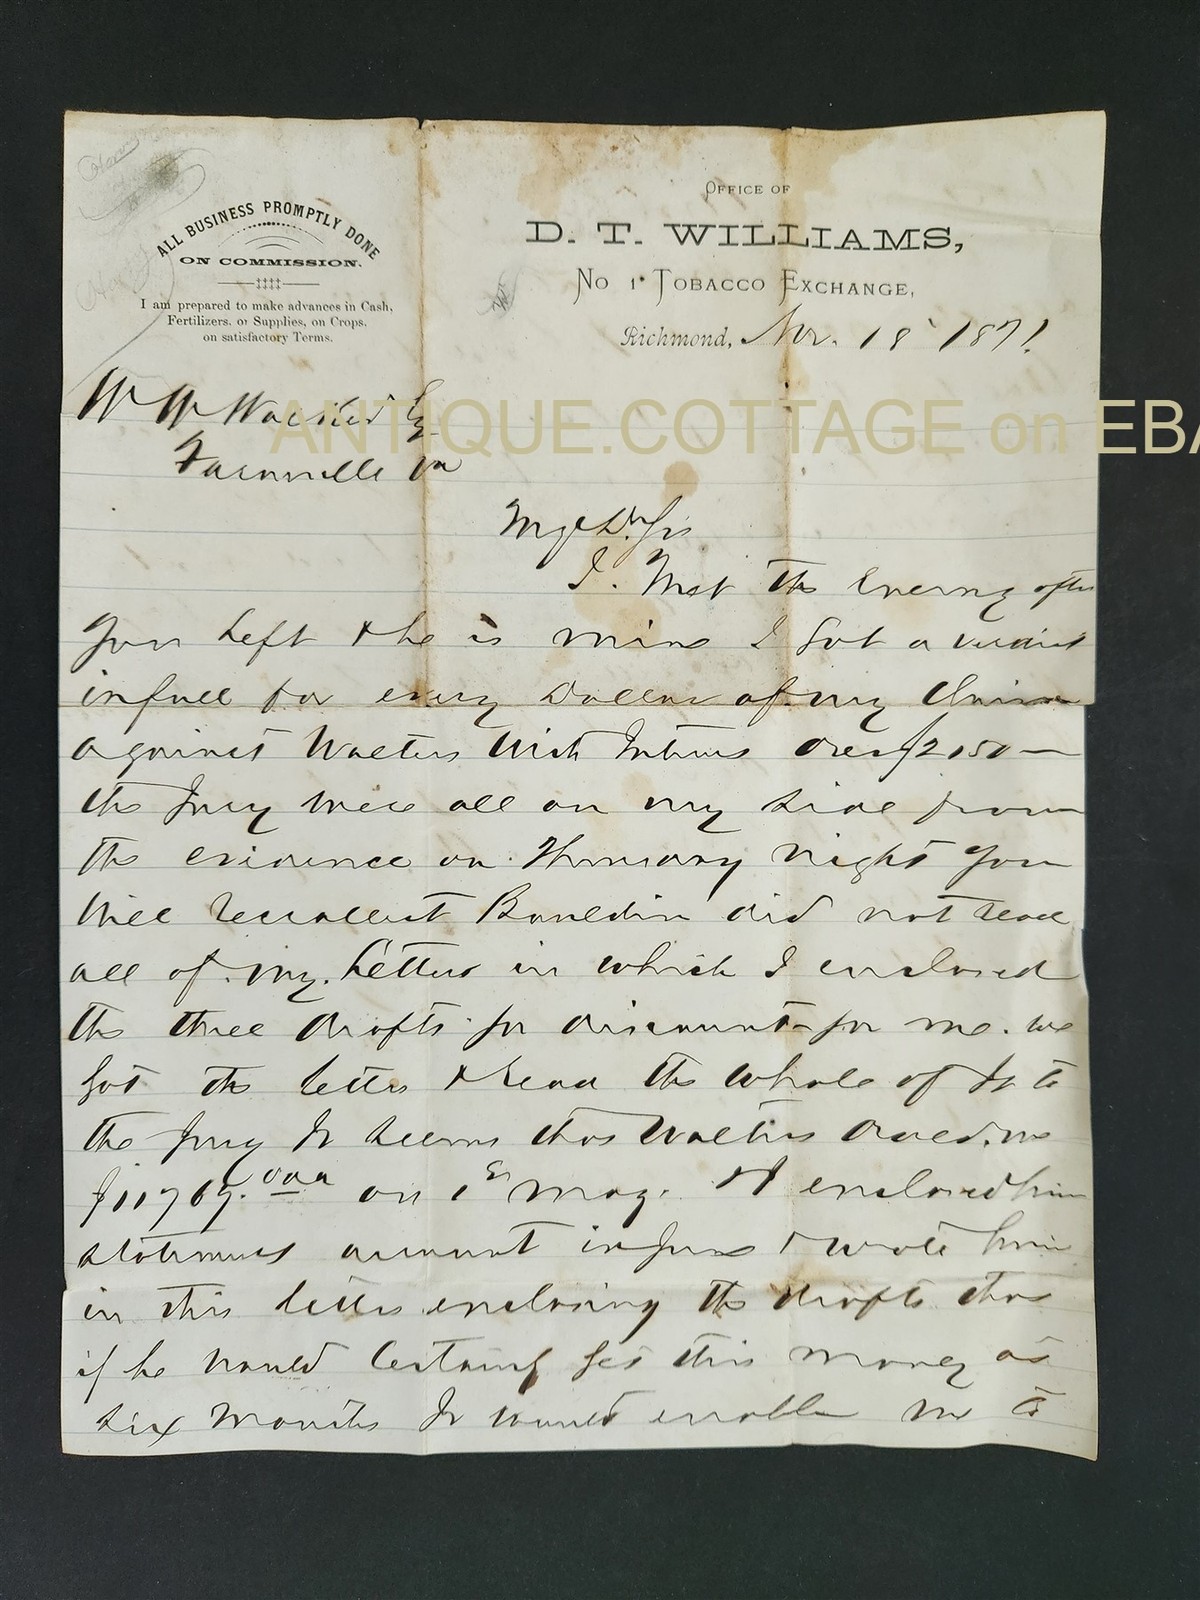 ALL BUSINESS PROMPTLY DONE
ON COMMISSION.
I am prepared to make advances in Cash,
Fertilizers, or Supplies, on Crops,
on satisfactory Terms.
OFFICE OF
D. T. WILLIAMS,
No 1 TOBACCO EXCHANGE,
Richmond, Nov. 18 1871
W W Walker Esq
Farmville Va
ANTIQUE.COTTAGE on EBA
My Dr Sir
I. Met the Evening after
You left & he is mine I Got a verdict
in full for every Dollar of my Claim
against Walters With Interest over $2150 —
the Jury were all on my side from
the evidence on Thursday night You
will recollect did not read
all of my. Letters in which I enclosed
the three drafts for discount for me. we
Got the letter & read the whole of It to
the Jury It seems that Walters Owed. me
on 1st May. & I enclosed him
account & wrote him
in this letter enclosing the drafts that
if he would Certainly Get this money at
six Months It would enable me to